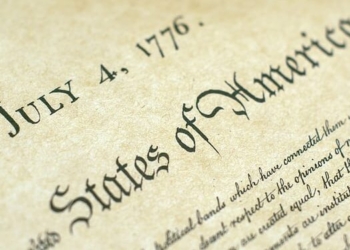 July 4, 1776.
States of America
political bands which have connected them
decent respect to the opinions of
are created equal, that
are institu
to alter